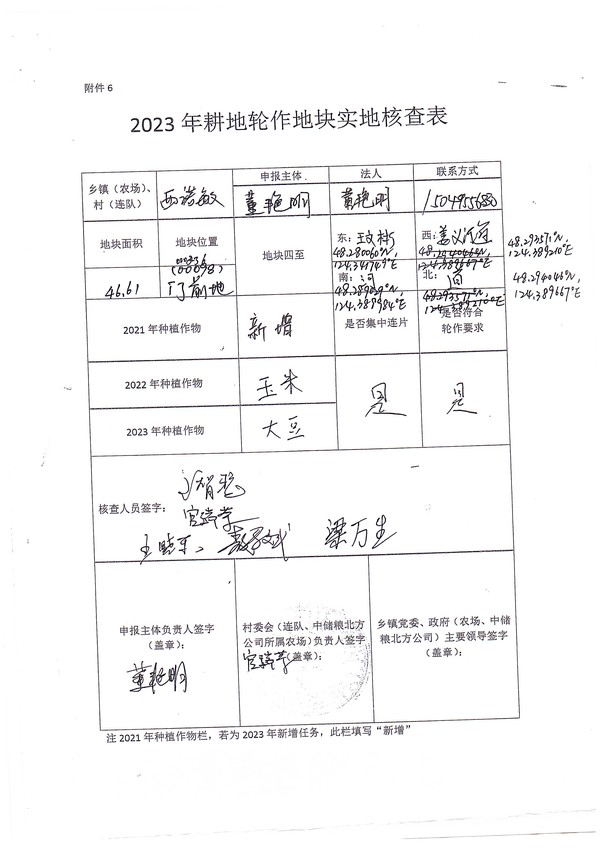 附件 6
2023 年耕地轮作地块实地核查表
乡镇（农场）、村（连队）
西诺敏
申报主体
董艳明
法人
董艳明
联系方式
地块面积
地块位置
地块四至
46.61
门前地
东：
48.280060°N,
124.341749°E
南：河
西：姜义
北：
48.29357°N,
124.389210°E
48.294046°N,
124.389667°E
2021 年种植作物
新增
是否集中连片
是否符合
轮作要求
2022 年种植作物
玉米
是
是
2023 年种植作物
大豆
核查人员签字：
官瑞芳
王晓军
梁万生
申报主体负责人签字
（盖章）：
董艳明
村委会（连队、中储粮北方
公司所属农场）负责人签字
（盖章）：
官瑞芳
乡镇党委、政府（农场、中储
粮北方公司）主要领导签字
（盖章）：
注 2021 年种植作物栏，若为 2023 年新增任务，此栏填写“新增”